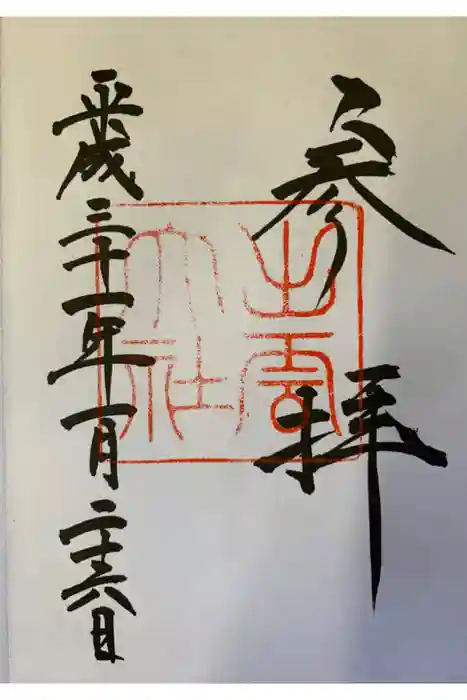 参拝
出雲
大社
平成三十一年一月二十六日